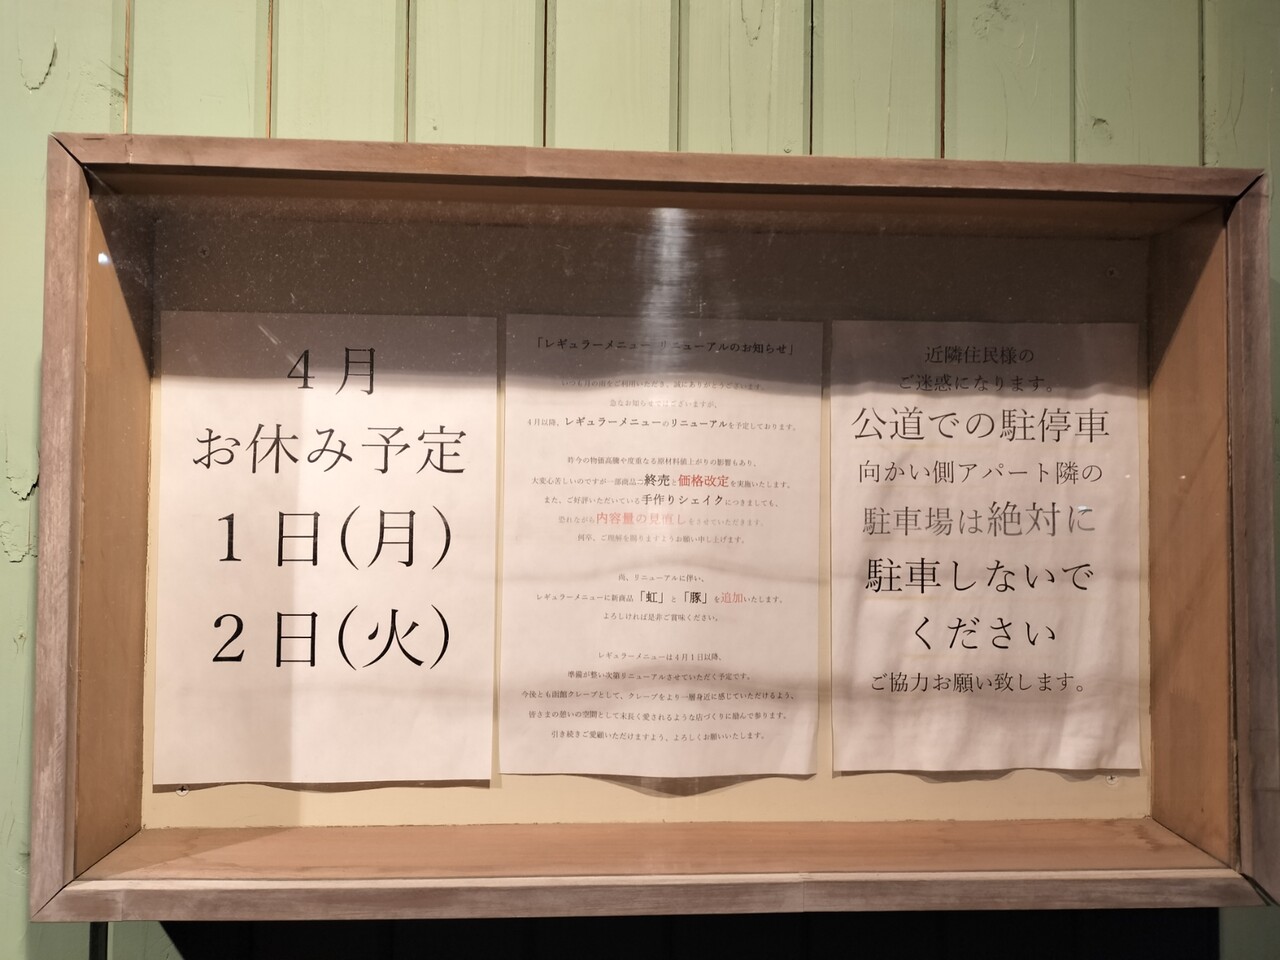 4月
お休み予定
1日(月)
2日(火)
「レギュラーメニュー リニューアルのお知らせ」
急なお知らせではございますが、
4月以降、レギュラーメニューのリニューアルを予定しております。
昨今の物価高騰や度重なる原材料値上がりの影響もあり、
大変心苦しいのですが一部商品に終売と価格改定を実施いたします。
また、ご好評いただいている手作りシェイクにつきましても、
恐れながら内容量の見直しをさせていただきます。
何卒、ご理解を賜りますようお願い申し上げます。
尚、リニューアルに伴い、
レギュラーメニューに新商品「虹」と「豚」を追加いたします。
よろしければ是非ご賞味ください。
レギュラーメニューは4月1日以降、
準備が整い次第リニューアルさせていただく予定です。
今後とも函館クレープとして、クレープをより一層身近に感じていただけるよう、
皆さまの憩いの空間として末長く愛されるような店づくりに励んで参ります。
引き続きご愛顧いただけますよう、よろしくお願いいたします。
近隣住民様の
ご迷惑になります。
公道での駐停車
向かい側アパート隣の
駐車場は絶対に
駐車しないで
ください
ご協力お願い致します。